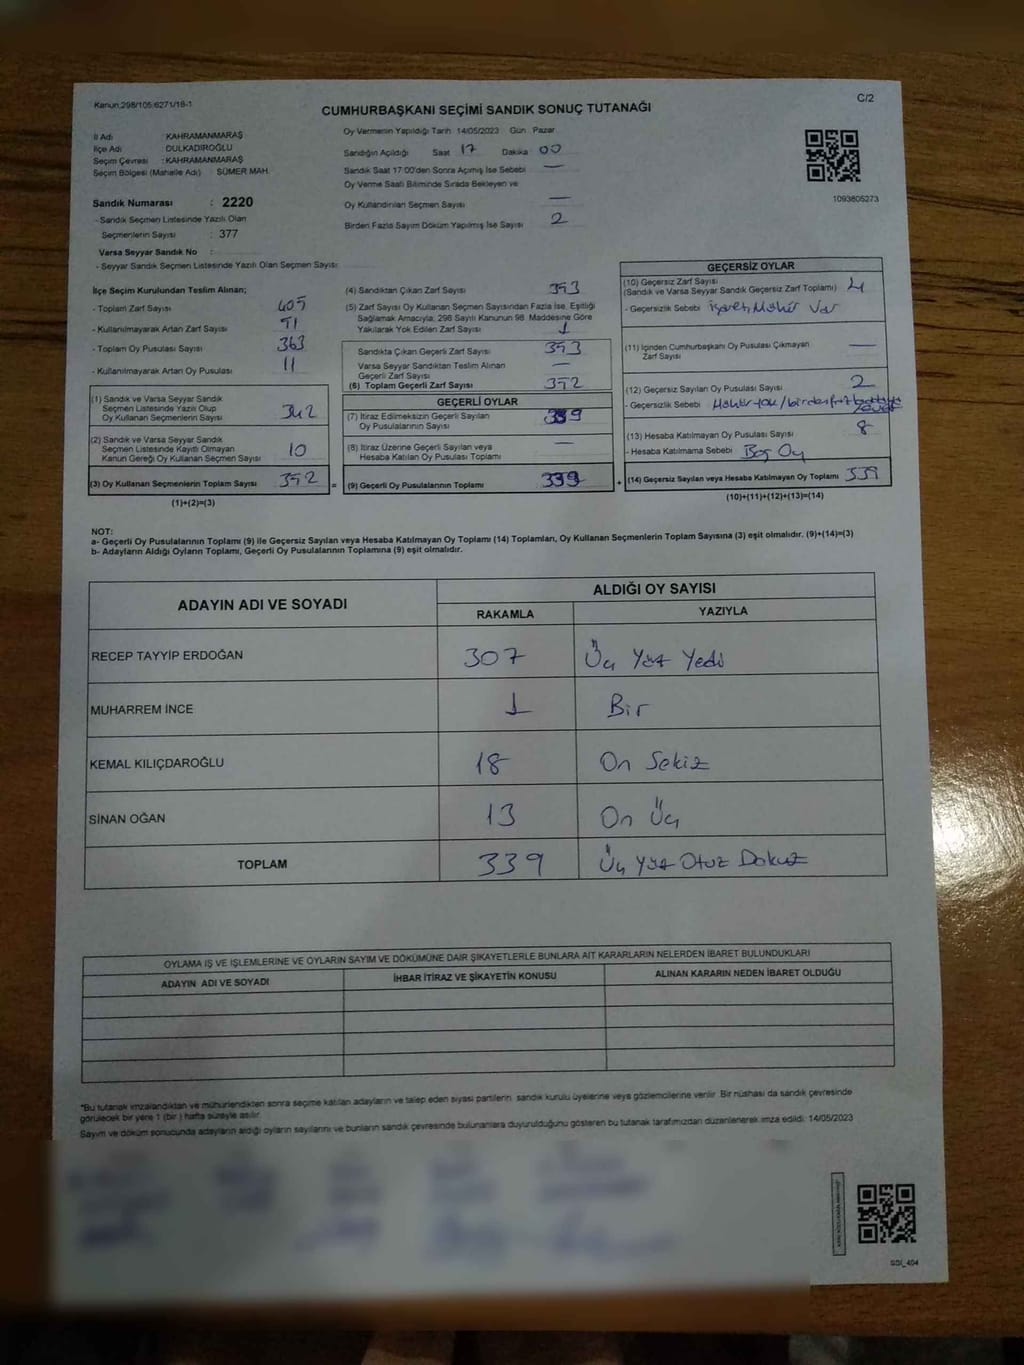 Kanun:298/105:6271/18-1
C/2
CUMHURBAŞKANI SEÇİMİ SANDIK SONUÇ TUTANAĞI
İl Adı : KAHRAMANMARAŞ
İlçe Adı : DULKADİROĞLU
Seçim Çevresi : KAHRAMANMARAŞ
Seçim Bölgesi (Mahalle Adı) : SÜMER MAH.
Oy Vermenin Yapıldığı Tarih 14/05/2023 Gün Pazar
Sandığın Açıldığı Saat 17 Dakika 00
Sandık Saat 17:00'den Sonra Açımış İse Sebebi —
Oy Verme Saati Bitiminde Sırada Bekleyen ve
Oy Kullandırılan Seçmen Sayısı —
Birden Fazla Sayım Döküm Yapılmış İse Sayısı 2
1093805273
Sandık Numarası : 2220
- Sandık Seçmen Listesinde Yazılı Olan
Seçmenlerin Sayısı : 377
Varsa Seyyar Sandık No :
- Seyyar Sandık Seçmen Listesinde Yazılı Olan Seçmen Sayısı:
İlçe Seçim Kurulundan Teslim Alınan;
- Toplam Zarf Sayısı 405
- Kullanılmayarak Artan Zarf Sayısı
- Toplam Oy Pusulası Sayısı 363
- Kullanılmayarak Artan Oy Pusulası 11
(1) Sandık ve Varsa Seyyar Sandık
Seçmen Listesinde Yazılı Olup
Oy Kullanan Seçmenlerin Sayısı 342
(2) Sandık ve Varsa Seyyar Sandık
Seçmen Listesinde Kayıtlı Olmayan
Kanun Gereği Oy Kullanan Seçmen Sayısı 10
(3) Oy Kullanan Seçmenlerin Toplam Sayısı 352 =
(1)+(2)=(3)
(4) Sandıktan Çıkan Zarf Sayısı 353
(5) Zarf Sayısı Oy Kullanan Seçmen Sayısından Fazla İse, Eşitliği
Sağlamak Amacıyla, 298 Sayılı Kanunun 98. Maddesine Göre
Yakılarak Yok Edilen Zarf Sayısı 1
Sandıkta Çıkan Geçerli Zarf Sayısı 353
Varsa Seyyar Sandıktan Teslim Alınan
Geçerli Zarf Sayısı —
(6) Toplam Geçerli Zarf Sayısı 352
GEÇERLİ OYLAR
(7) İtiraz Edilmeksizin Geçerli Sayılan
Oy Pusulalarının Sayısı 339
(8) İtiraz Üzerine Geçerli Sayılan veya
Hesaba Katılan Oy Pusulası Toplamı —
(9) Geçerli Oy Pusulalarının Toplamı 339 +
GEÇERSİZ OYLAR
(10) Geçersiz Zarf Sayısı
(Sandık ve Varsa Seyyar Sandık Geçersiz Zarf Toplamı) 4
- Geçersizlik Sebebi İşaret, Mühür Var
(11) İçinden Cumhurbaşkanı Oy Pusulası Çıkmayan
Zarf Sayısı —
(12) Geçersiz Sayılan Oy Pusulası Sayısı 2
- Geçersizlik Sebebi Mühür yok / birden fazla
(13) Hesaba Katılmayan Oy Pusulası Sayısı 8
- Hesaba Katılmama Sebebi Boş Oy
(14) Geçersiz Sayılan veya Hesaba Katılmayan Oy Toplamı 339
(10)+(11)+(12)+(13)=(14)
NOT:
a- Geçerli Oy Pusulalarının Toplamı (9) ile Geçersiz Sayılan veya Hesaba Katılmayan Oy Toplamı (14) Toplamları, Oy Kullanan Seçmenlerin Toplam Sayısına (3) eşit olmalıdır. (9)+(14)=(3)
b- Adayların Aldığı Oyların Toplamı, Geçerli Oy Pusulalarının Toplamına (9) eşit olmalıdır.
ADAYIN ADI VE SOYADI
ALDIĞI OY SAYISI
RAKAMLA YAZIYLA
RECEP TAYYİP ERDOĞAN 307 Üç Yüz Yedi
MUHARREM İNCE 1 Bir
KEMAL KILIÇDAROĞLU 18 On Sekiz
SİNAN OĞAN 13 On Üç
TOPLAM 339 Üç Yüz Otuz Dokuz
OYLAMA İŞ VE İŞLEMLERİNE VE OYLARIN SAYIM VE DÖKÜMÜNE DAİR ŞİKAYETLERLE BUNLARA AİT KARARLARIN NELERDEN İBARET BULUNDUKLARI
ADAYIN ADI VE SOYADI İHBAR İTİRAZ VE ŞİKAYETİN KONUSU ALINAN KARARIN NEDEN İBARET OLDUĞU
*Bu tutanak imzalandıktan ve mühürlendikten sonra seçime katılan adayların ve talep eden siyasi partilerin sandık kurulu üyelerine veya gözlemcilerine verilir. Bir nüshası da sandık çevresinde
görülecek bir yere 1 (bir) hafta süreyle asılır.
Sayım ve döküm sonucunda adayların aldığı oyların sayılarını ve bunların sandık çevresinde bulunanlara duyurulduğunu gösteren bu tutanak tarafımızdan düzenlenerek imza edildi. 14/05/2023